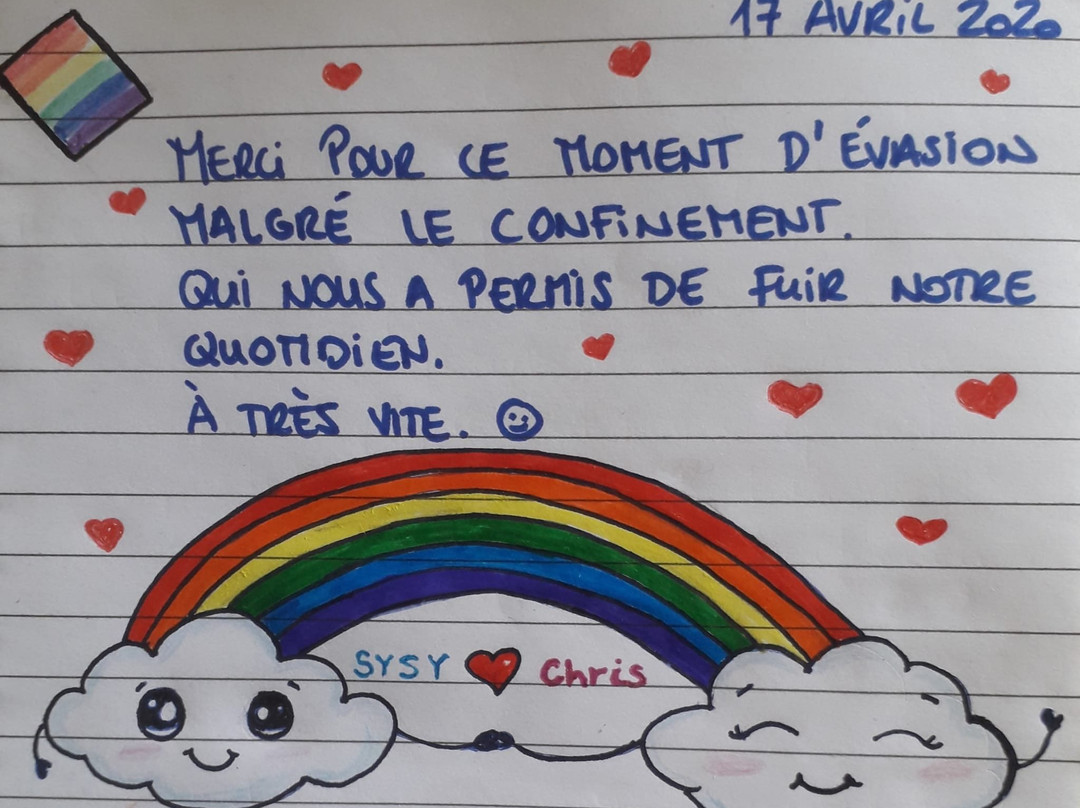 17 AVRiL 2020
MERCi POUR CE MOMENT D'ÉVASION
MALGRÉ LE CONFiNEMENT.
QUi NOUS A PERMIS DE FUIR NOTRE
QUOTIDIEN.
À TRÈS VITE.
SYSY Chris